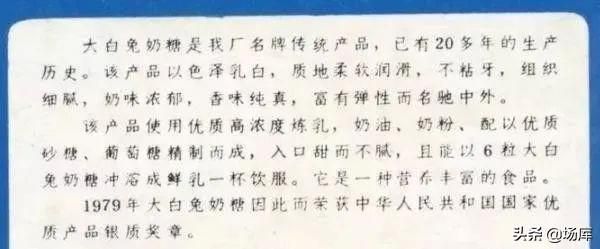 大白兔奶糖是我厂名牌传统产品，已有20多年的生产
历史。该产品以色泽乳白，质地柔软润滑，不粘牙，组织
细腻，奶味浓郁，香味纯真，富有弹性而名驰中外。
该产品使用优质高浓度炼乳，奶油、奶粉、配以优质
砂糖、葡萄糖精制而成，入口甜而不腻，且能以6粒大白
兔奶糖冲溶成鲜乳一杯饮服。它是一种营养丰富的食品。
1979年大白兔奶糖因此而荣获中华人民共和国国家优
质产品银质奖章。
头条 @场库